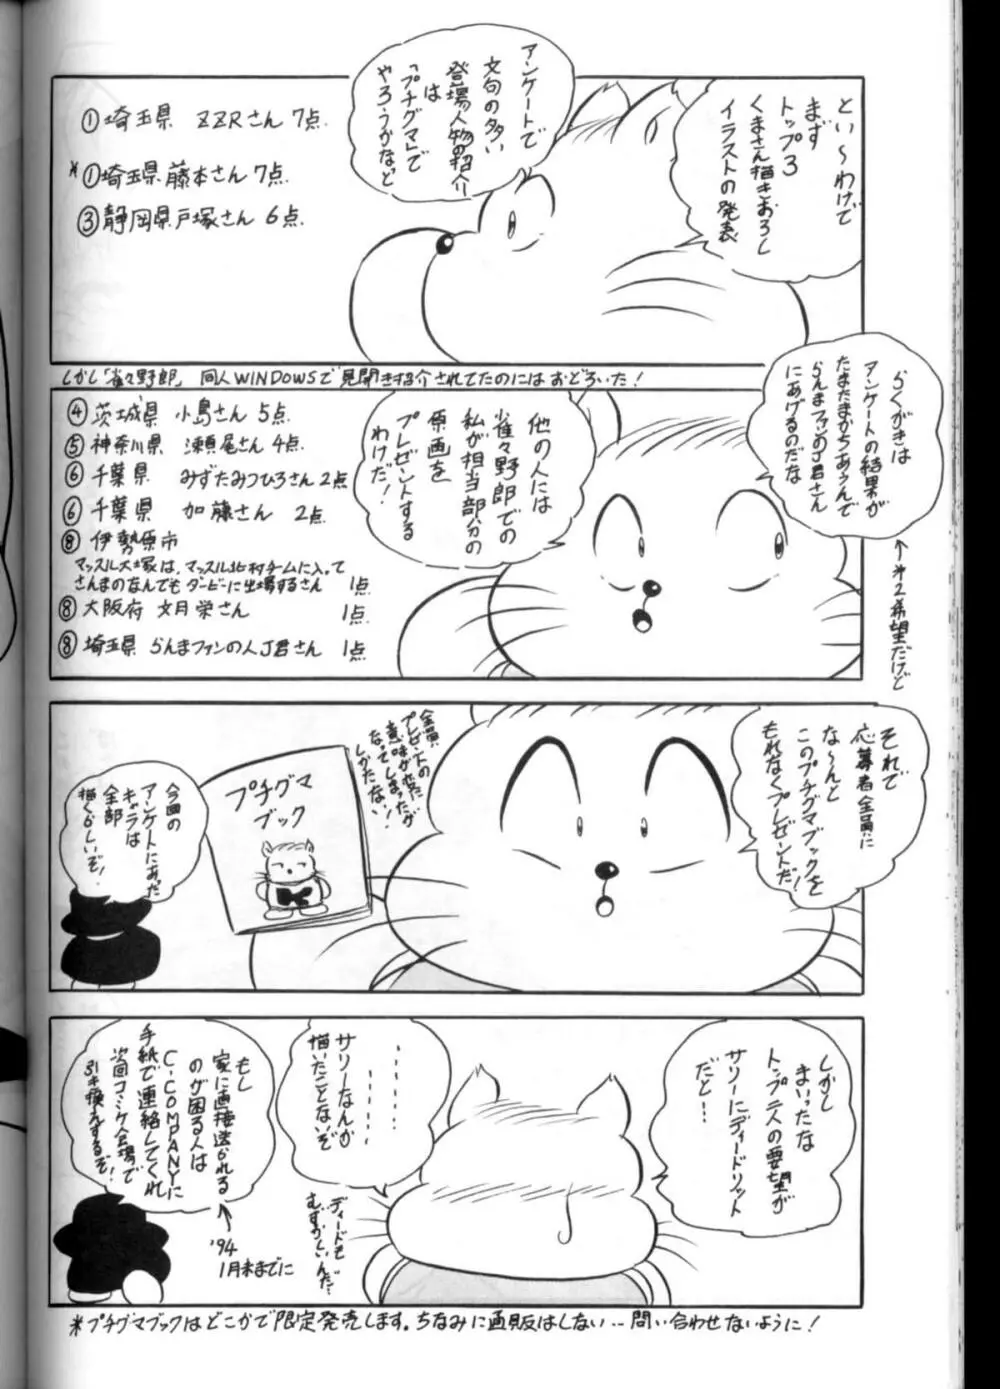 とい〜わけで
まず
トップ3
くまさん描きおろし
イラストの発表
アンケートで
文句の多い
登場人物の紹介
は
「プチグマ」で
やろうかなど
①埼玉県 ZZRさん 7点
*①埼玉県藤本さん 7点
③静岡県戸塚さん 6点
しかし「雀々野郎」 同人WINDOWSで見開き紹介されてたのにはおどろいた!
らくがきは
アンケートの結果が
たまたまかちあうんで
らんまファンのJ君さん
にあげるのだな
←第2希望だけど
他の人には
雀々野郎での
私が担当部分の
原画を
プレゼントする
わけだ!
④茨城県 小島さん 5点
⑤神奈川県 瀬尾さん 4点
⑥千葉県 みずたみつひろさん 2点
⑥千葉県 加藤さん 2点
⑧伊勢原市
マッスル大塚は、マッスル北村チームに入って
さんまのなんでもダービーに出場するさん 1点
⑧大阪府 文月栄さん 1点
⑧埼玉県 らんまファンの人J君さん 1点
それで
応募者全員に
な〜んと
このプチグマブックを
もれなくプレゼントだ!
全員
プレゼントのため
なってしまったが
しかたない!
プチグマ
ブック
今回の
アンケートにあった
キャラは
全部
描くらしいぞ!
しかし
まいったな
トップ二人の要望が
サリーにディードリット
だと…
………
………
サリーなんか
描いたことないぞ
ディードも
むずかしいんだ…
もし
家に直接送られる
のが困る人は
C-COMPANYに
手紙で連絡してくれ
次回コミケ会場で
引き換えするぞ!
←'94
1月末までに
*プチグマブックはどこかで限定発売します。ちなみに通販はしない…問い合わせないように!